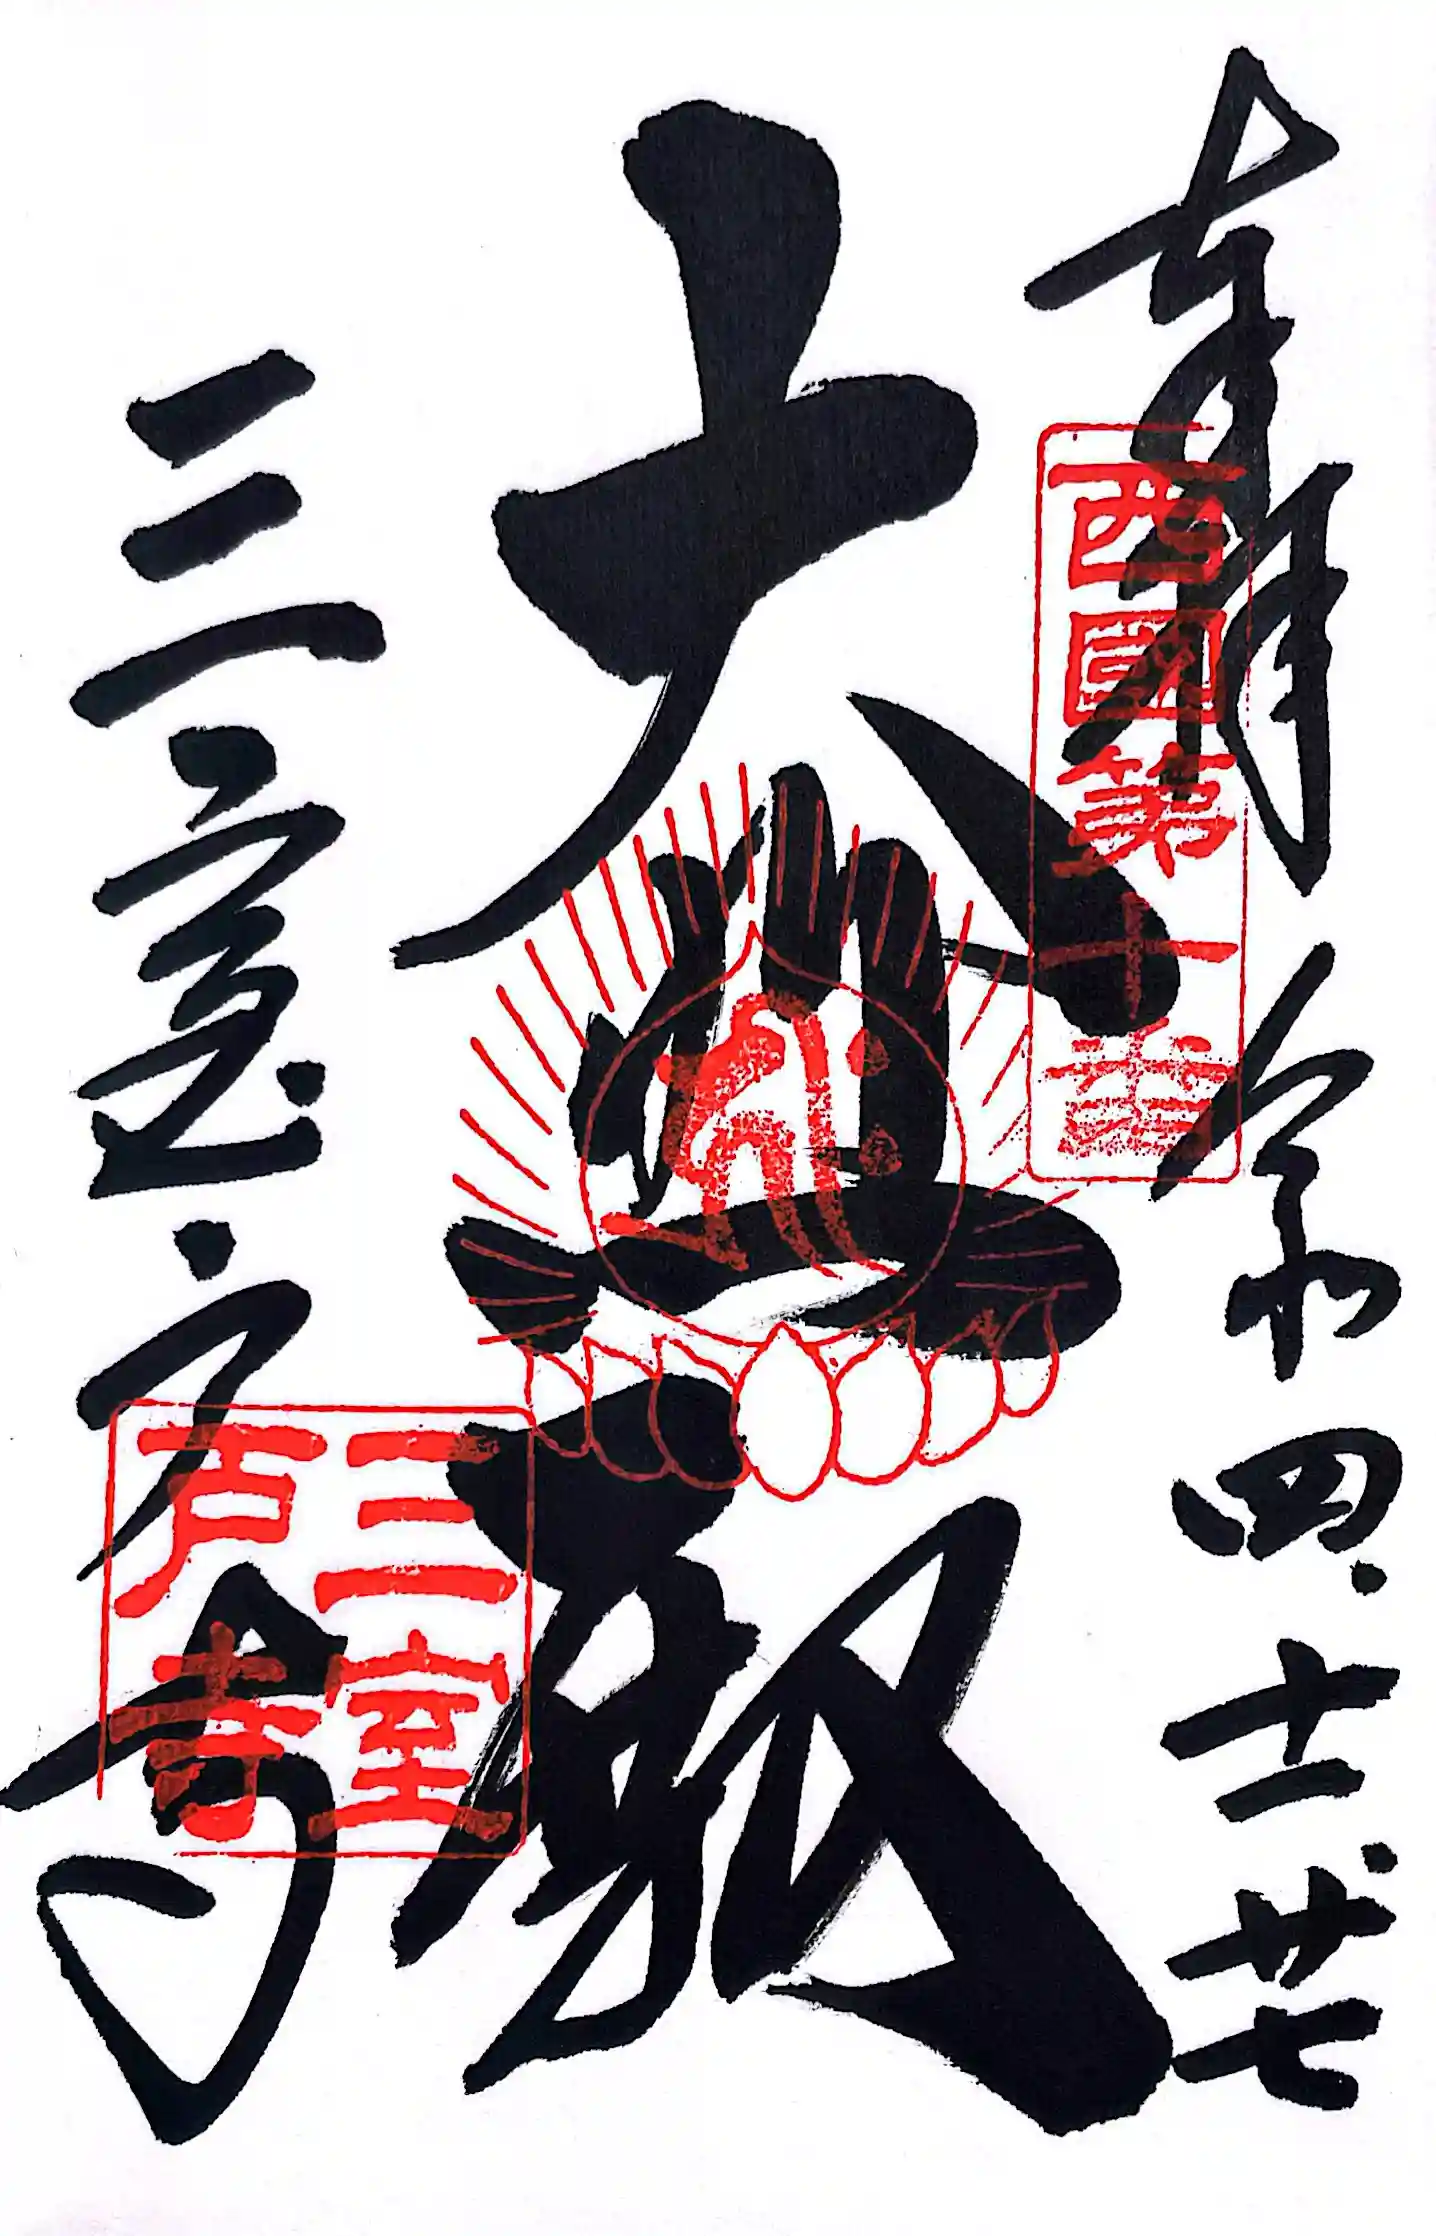 奉拝 令和四.十一.廿七
西國第十番
大悲殿
三室戸寺
三室
戸寺